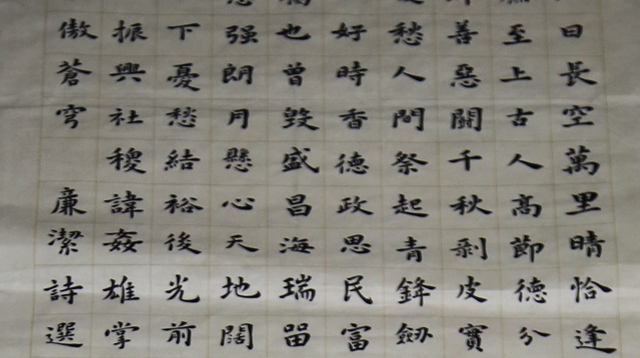 日長空萬里晴恰逢
至上古人高節德分
善惡闘千秋剥皮實
愁人間祭起青鋒劔
好時香德政思民富
也曾毁盛昌海瑞畱
强朗月懸心天地闊
下憂愁結裕後光前
振興社稷諱姦雄掌
傲蒼穹 廉潔詩選